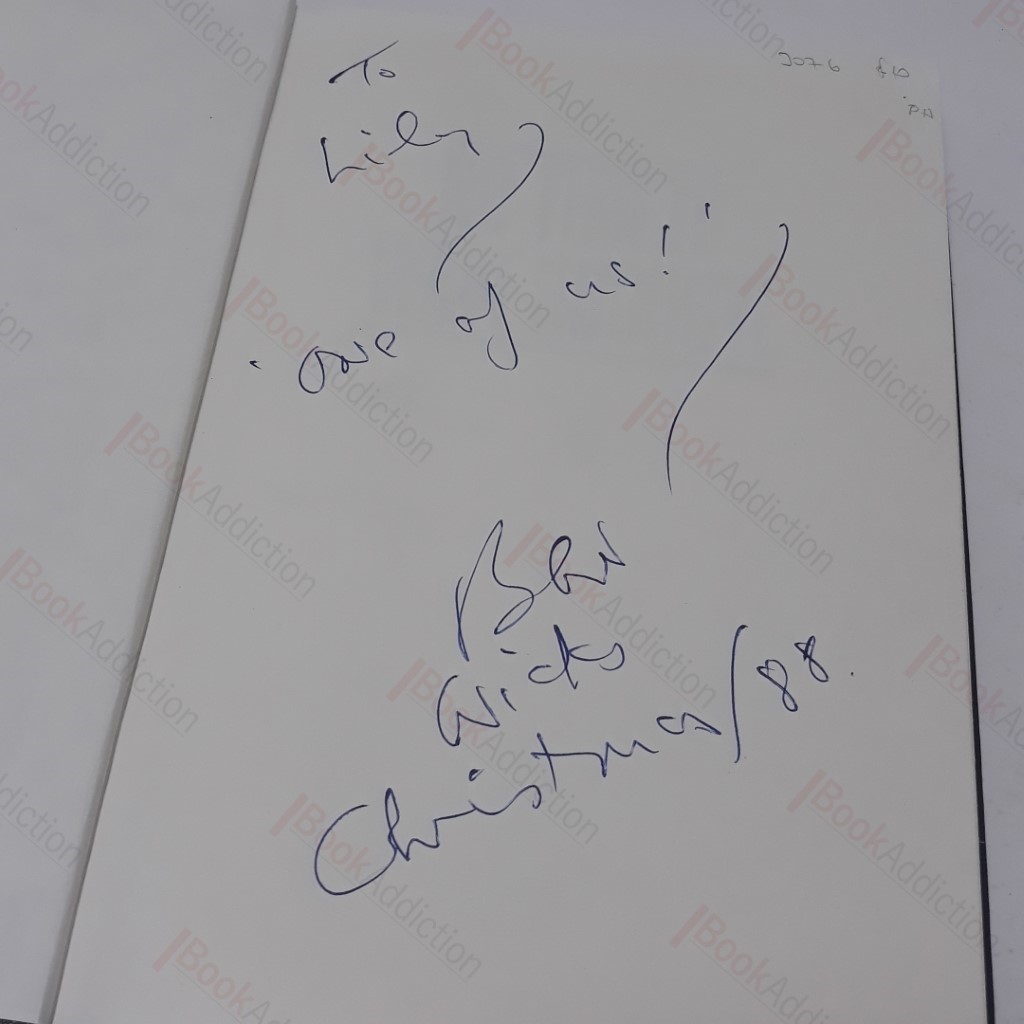 To
Lily
'one of us!'
Ben
Wicks
Christmas/88.
J076 £10
PN
BookAddiction